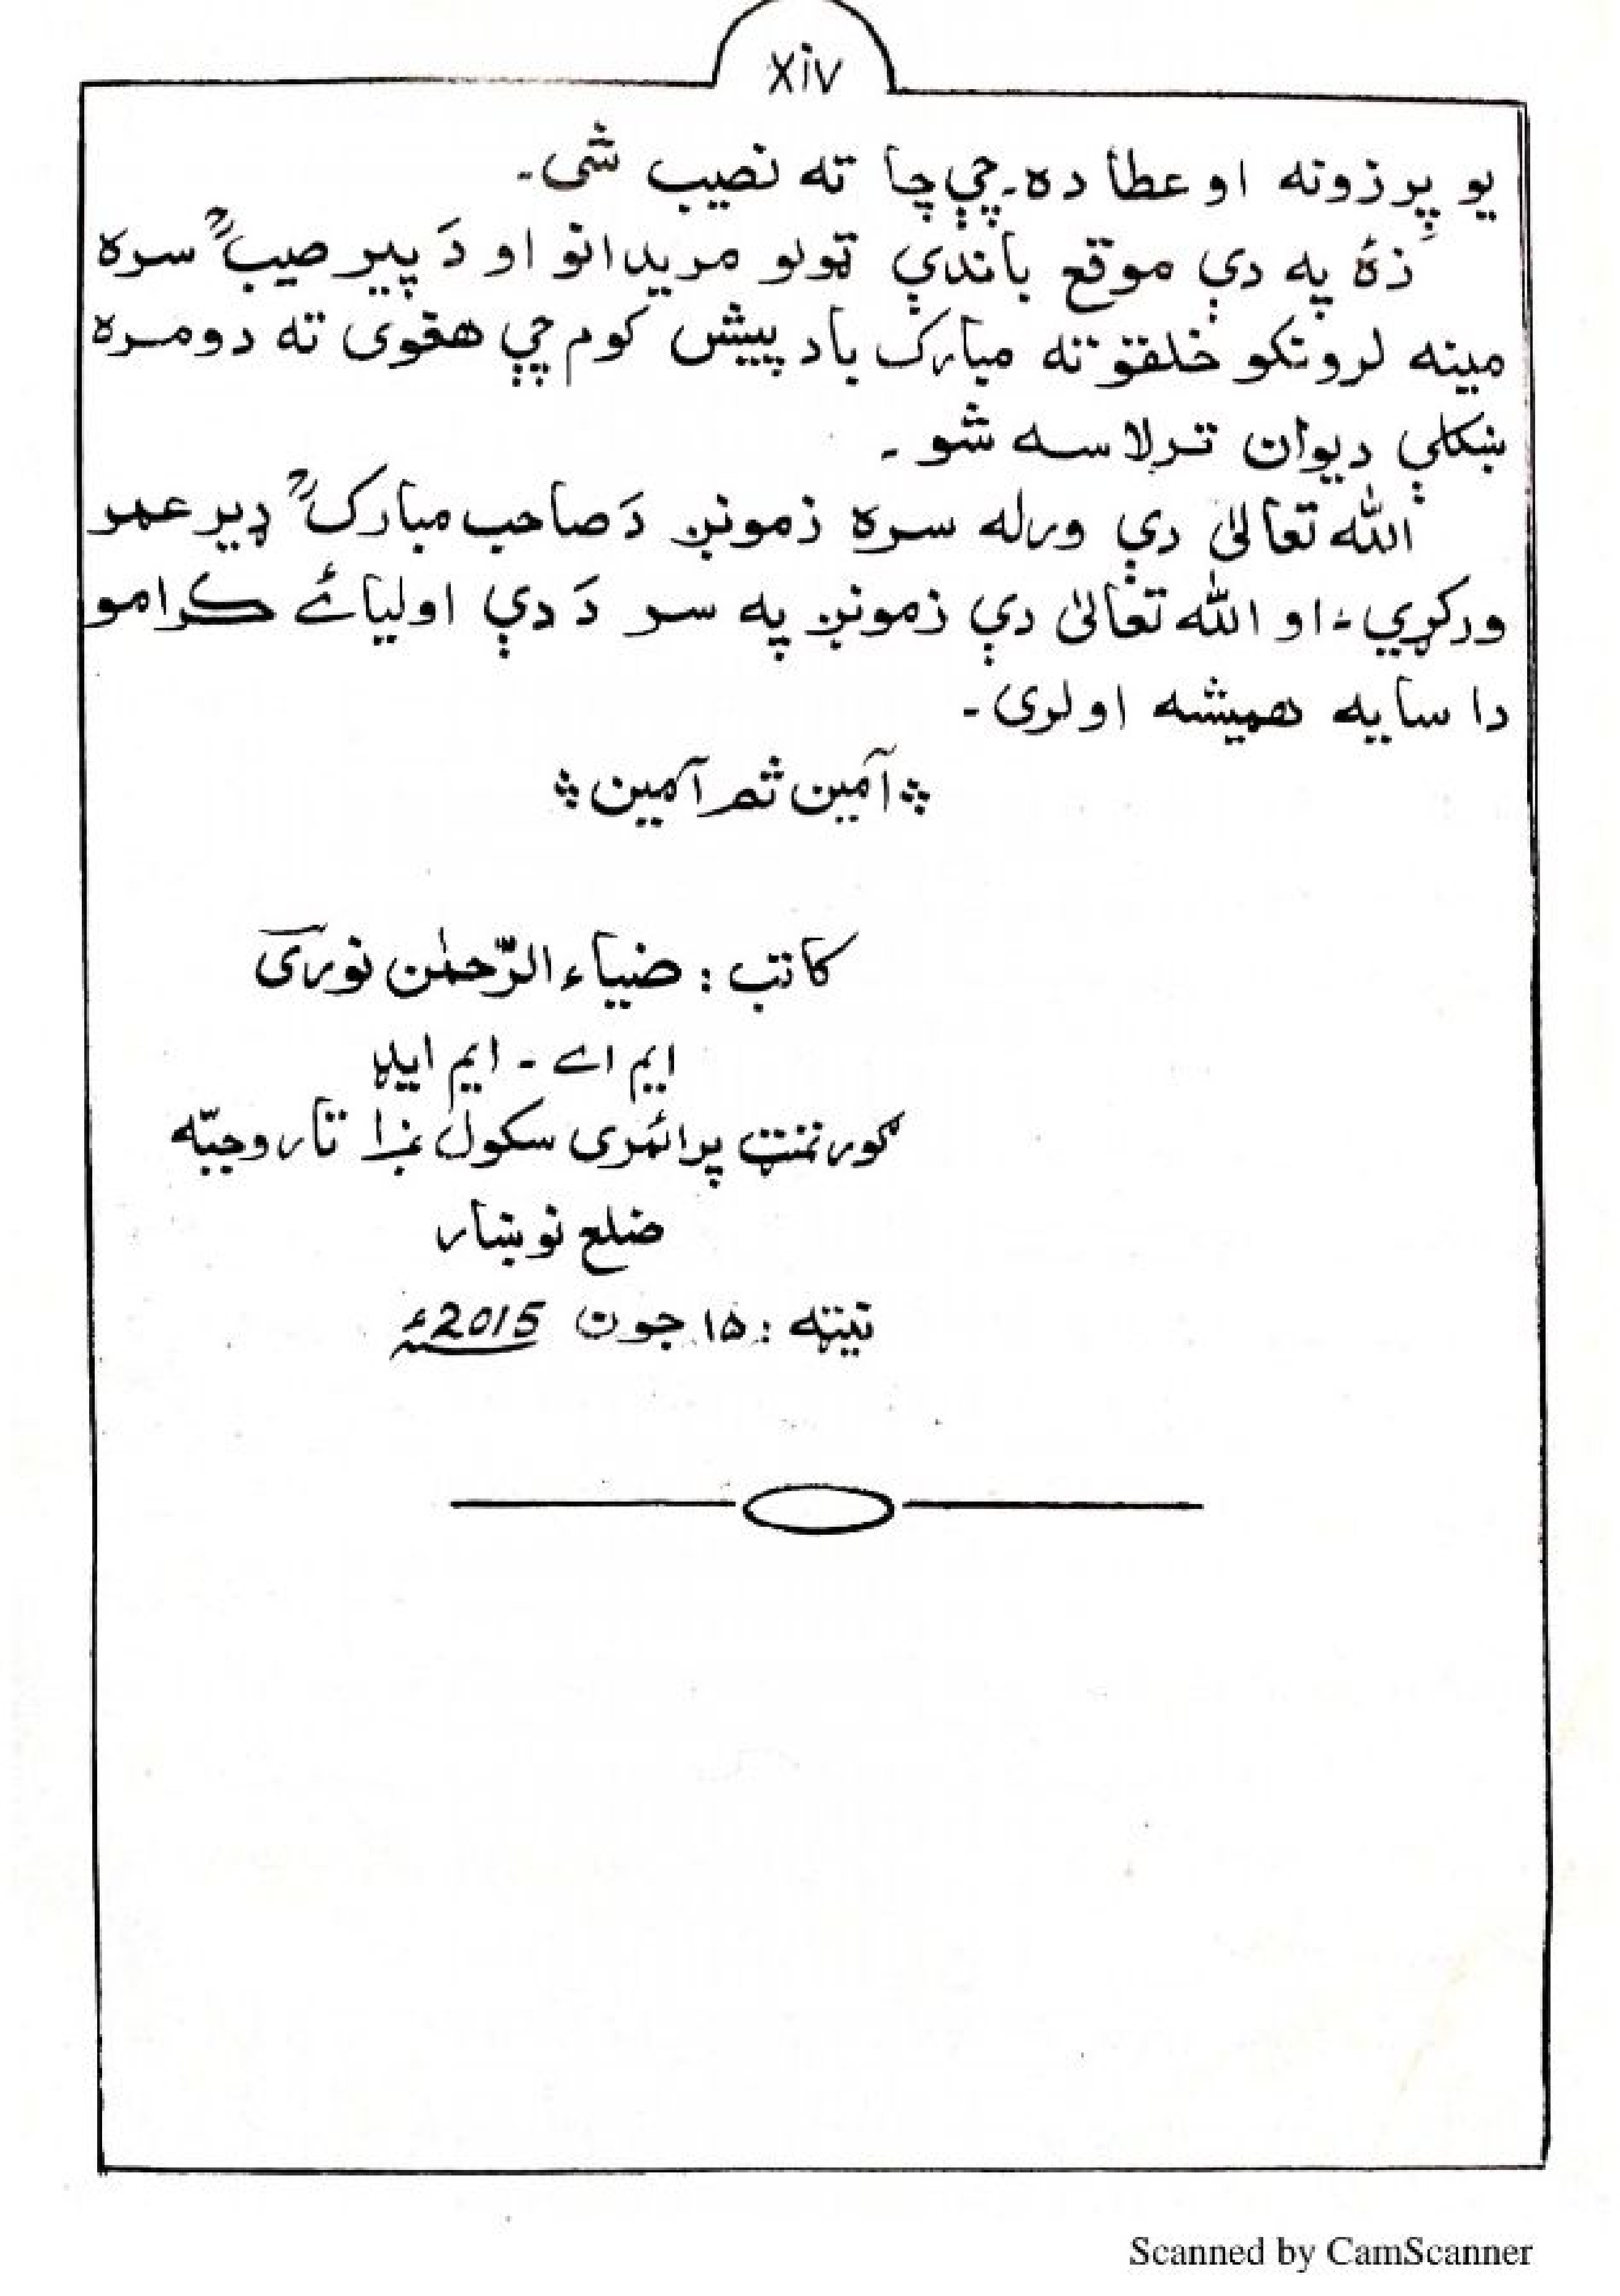 xiv
یو پېرزونه او عطا ده۔ چې چا ته نصیب شی۔
زۀ په دې موقع باندې ټولو مریدانو او دَ پیر صیبؒ سره
مینه لرونکو خلقو ته مبارک باد پیش کوم چې هغوی ته دومره
ښکلې دیوان ترلاسه شو۔
الله تعالیٰ دې ورله سره زمونږ دَ صاحب مبارکؒ ډیر عمر
ورکړي۔ او الله تعالیٰ دې زمونږ په سر دَ دې اولیائے کرامو
دا سایه همیشه اولری۔
آمین ثم آمین
کاتب : ضیاء الرّحمٰن نوری
ایم اے ۔ ایم ایډ
ګورنمنټ پرائمری سکول نمبر ا تاروجبّه
ضلع نوښار
نیټه : ۱۵ جون 2015ء
Scanned by CamScanner